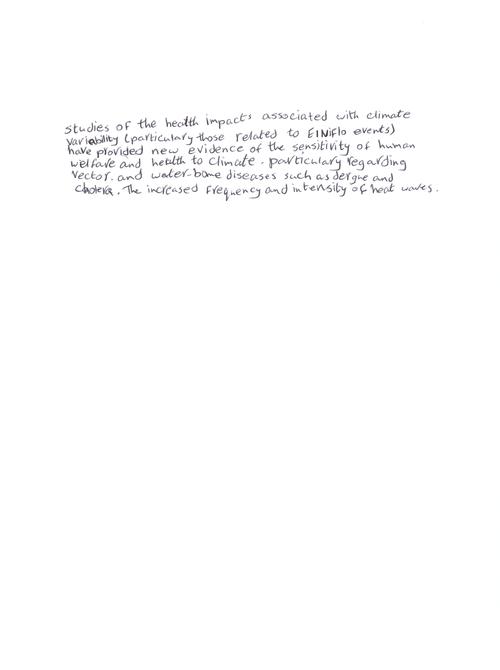 studies of the health impacts associated with climate
variability (particulary those related to EINiflo events)
have provided new evidence of the sensitivity of human
welfare and heulth to climate. particulary regarding
vector. and water-borne diseases such as dergue and
cholera. The increased frequency and intensity of heat waves.